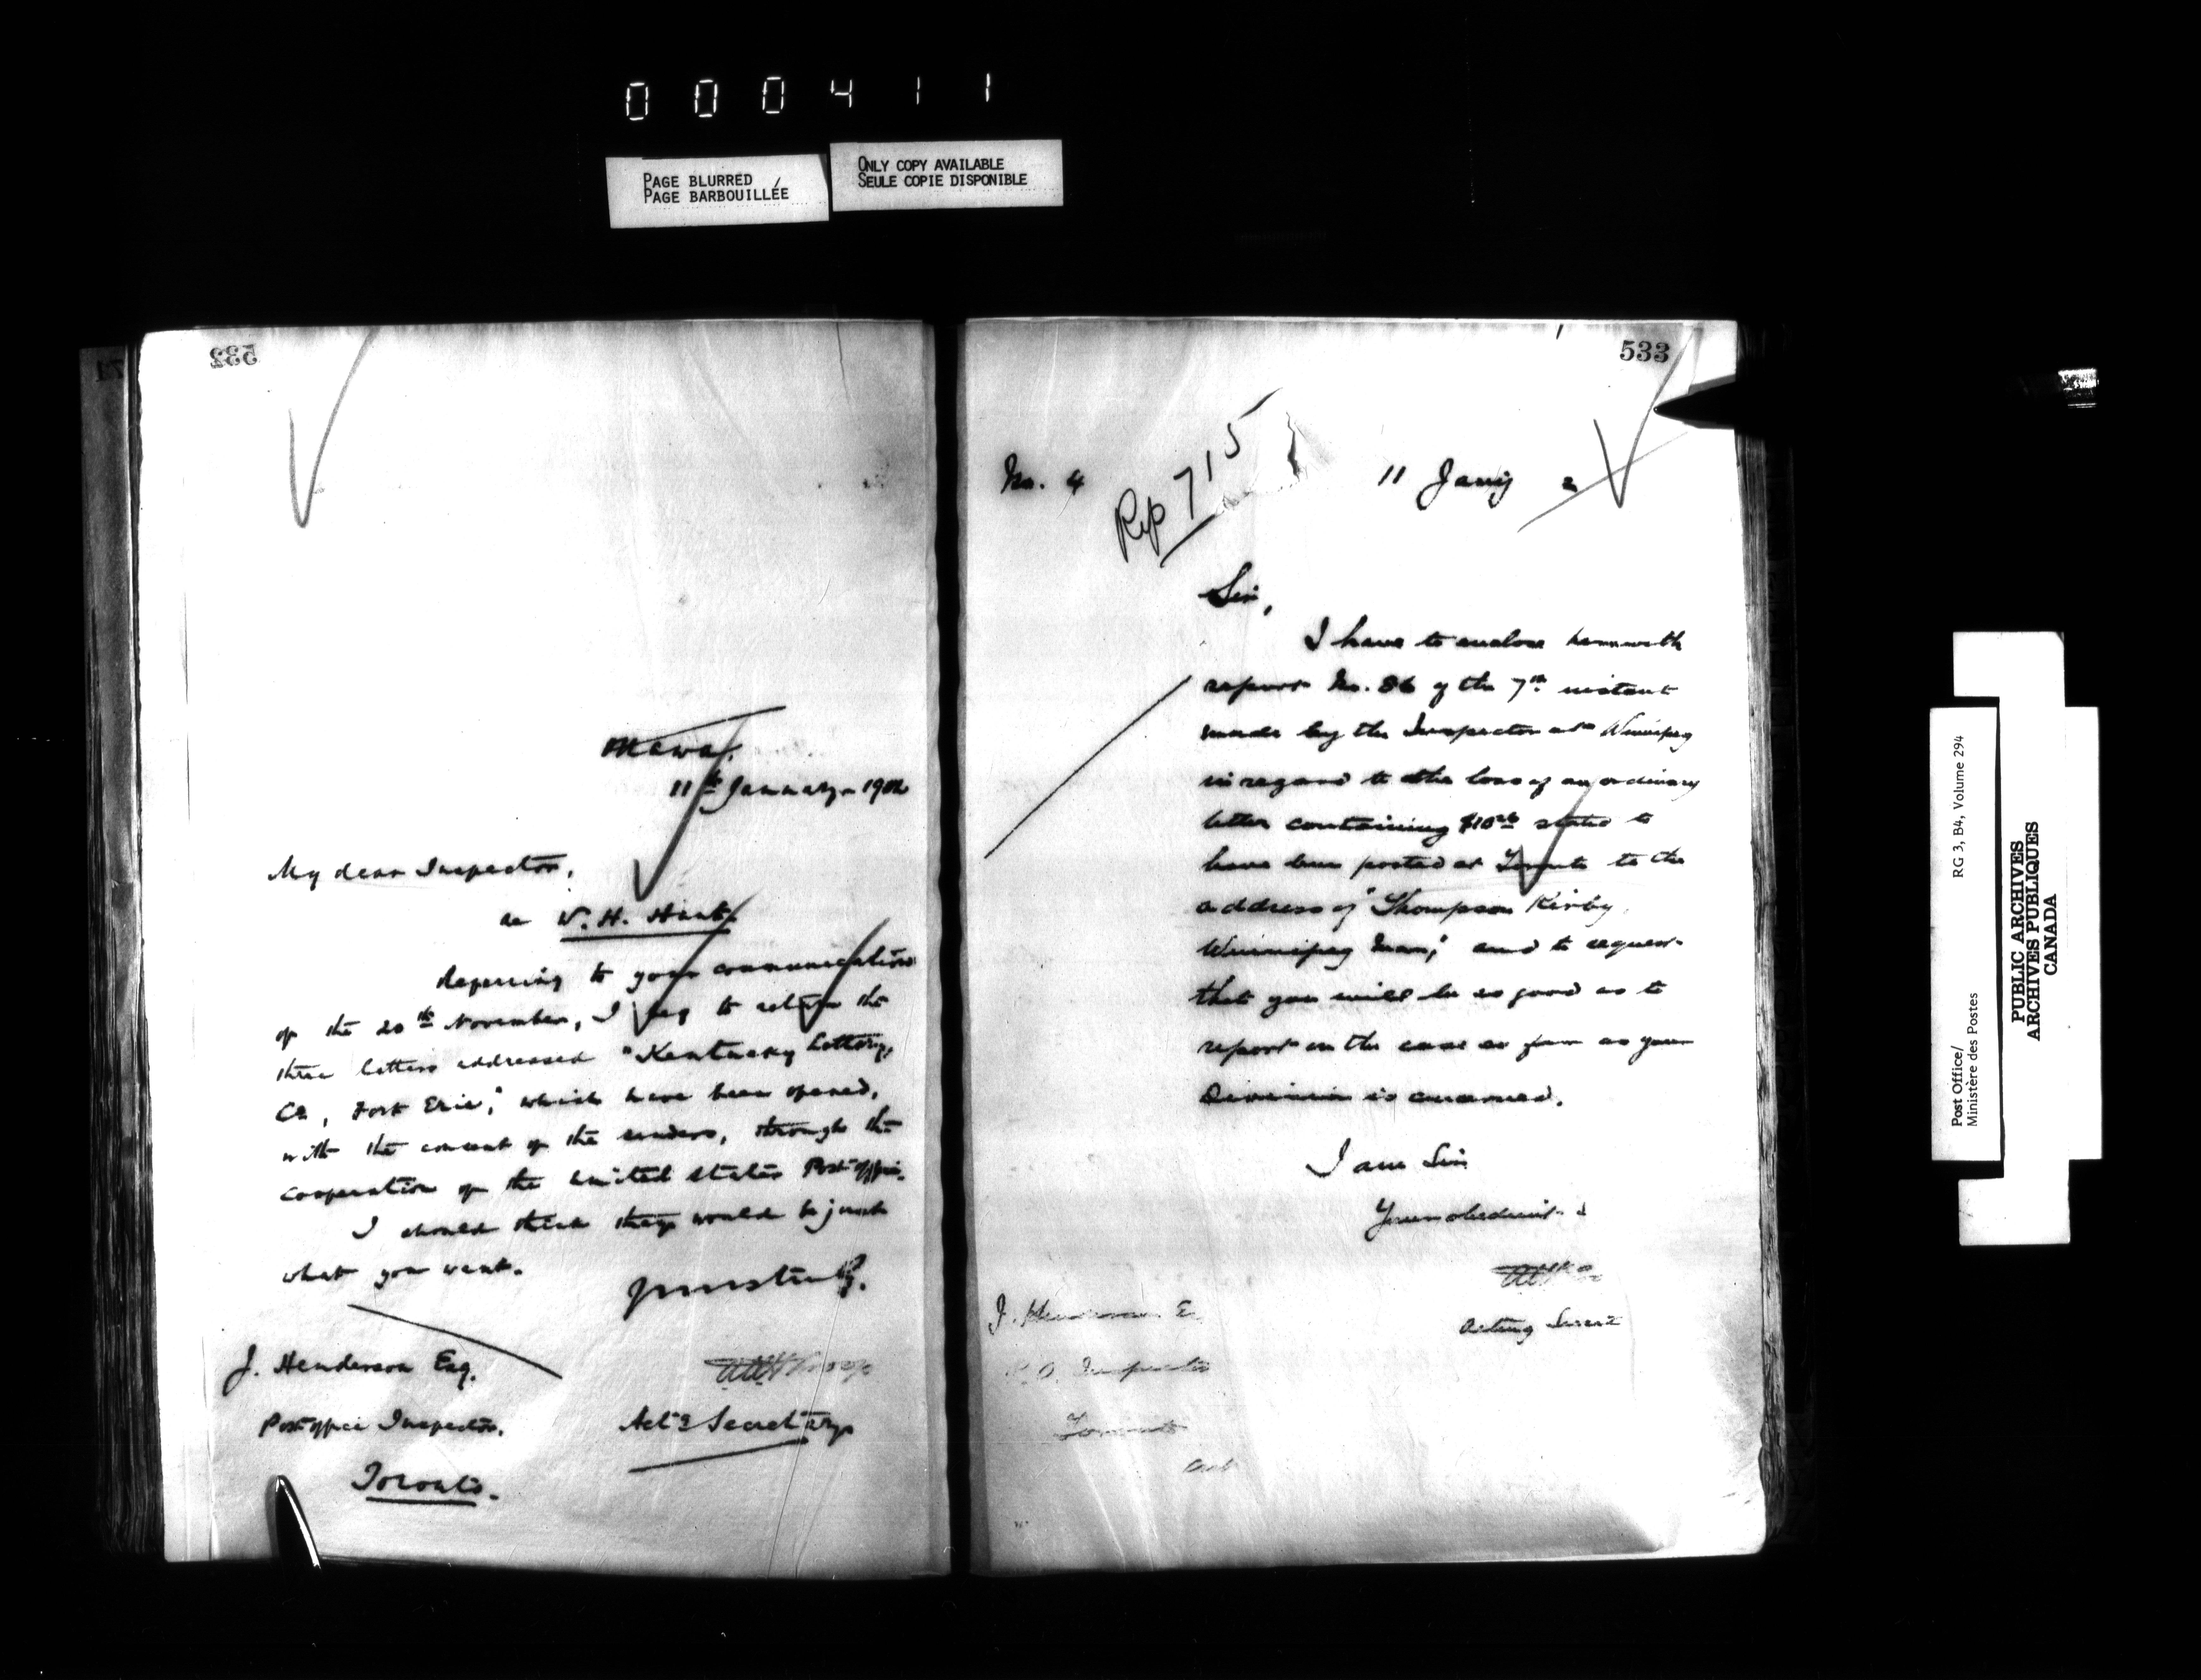 000411
PAGE BLURRED
PAGE BARBOUILLÉE
ONLY COPY AVAILABLE
SEULE COPIE DISPONIBLE
532
Ottawa,
11th January 1902
My dear Inspector,
re W. H. Hunt.
Referring to your communication
of the 20th November, I beg to return the
three letters addressed "Kentucky Lottery
Co, Fort Erie," which have been opened,
with the consent of the senders, through the
cooperation of the United States Post office.
I should think they would be just
what you want.
Yours truly.
Actg Secretary
J. Henderson Esq.
Post office Inspector.
Toronto.
533
No. 4
Rep 715
11 Jany 2
Sir,
I have to enclose herewith
report No. 86 of the 7th instant
made by the Inspector at Winnipeg
in regard to the loss of an ordinary
letter containing $10 stated to
have been posted at Toronto to the
address of "Thompson Kirby,
Winnipeg Man," and to request
that you will be so good as to
report on the case as far as your
Division is concerned.
I am Sir
Your obedient s
Acting Secre
J. Henderson E
P.O. Inspector
Toronto
Ont
Post Office/
Ministère des Postes
RG 3, B4, Volume 294
PUBLIC ARCHIVES
ARCHIVES PUBLIQUES
CANADA